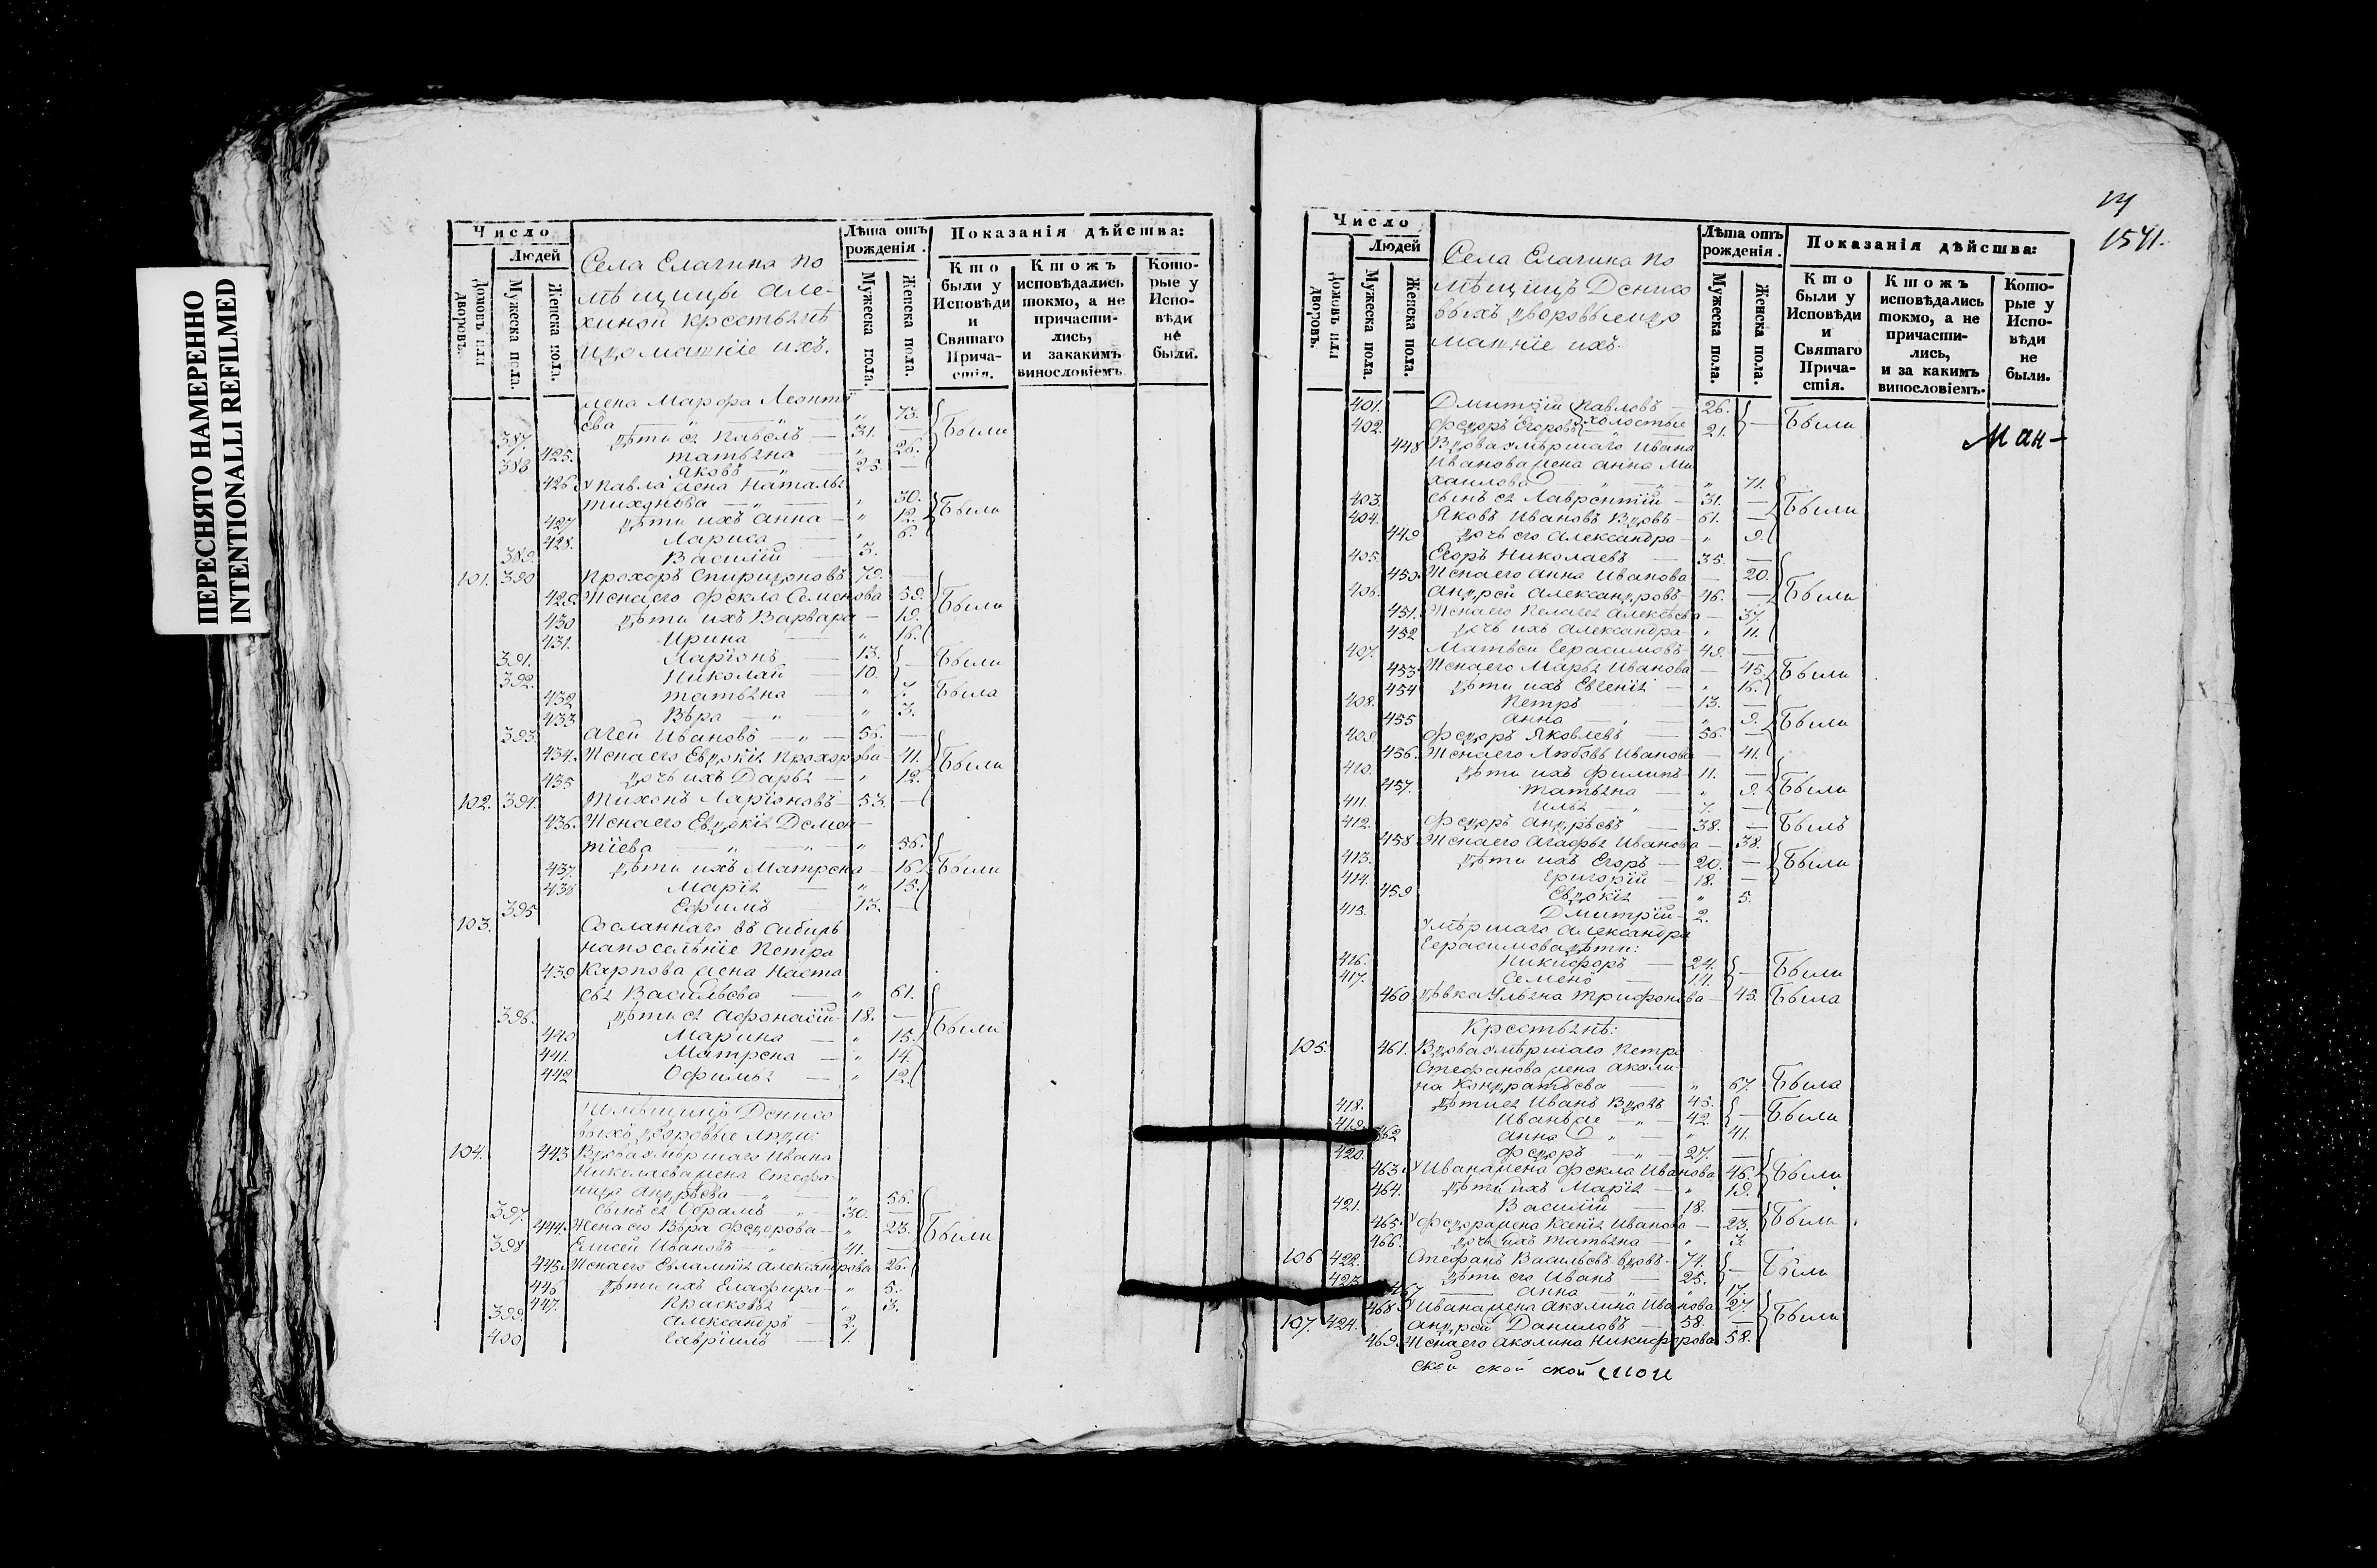 ПЕРЕСНЯТО НАМЕРЕННО
INTENTIONALLI REFILMED
Число
Домовъ или дворовъ.
Людей
Мужеска пола.
Женска пола.
Села Елагина по
мѣщицы Але-
хиной крестьянѣ
идоманніе ихъ.
Лѣта отъ рожденія.
Мужеска пола.
Женска пола.
Показанія дѣйства:
Кто были у Исповѣди и Святаго Причастія.
Ктожъ исповѣдались токмо, а не причастились, и закакимъ винословіемъ
Которые у Исповѣди не были.
жена Марфа Леонть
ева " 73. Были
387. дѣти ея Павелъ — 31. —
425. Татьяна — " 26.
388 Яковъ — 25. —
426 У Павла жена Наталья
Тихонова — " 30. Были
427 дѣти ихъ Анна — " 12.
428. Лариса — " 6.
389. Василій — 3.
101. 390 Прохоръ Спиридоновъ 79. —
429. Жена его Фекла Семенова 59. Были
430 дѣти ихъ Варвара — 19.
431. Ирина — " 16.
391. Ларіонъ — 13. — Были
392. Николай — 10.
432 Татьяна — " 7. Была
433 Вѣра — " 3.
393. Агей Ивановъ — 56. —
434. Жена его Евдокія Прохорова 41. Были
435 дочь ихъ Дарья — " 12.
102. 394. Тихонъ Ларіоновъ — 53. —
436. Жена его Евдокія Демен
тіева — " 56.
437. дѣти ихъ Матрена — 16. Были
438 Марія — " 15.
395 Ефимъ — 13. —
103. Сосланнаго въ Сибирь
напоселѣніе Петра
439 Карпова жена Наста
сья Васильева — " 61.
396. дѣти ея Афонасій 18. — Были
440 Марина — " 15.
441. Матрена — " 14.
442 Офимья — " 12.
Помѣщицъ Денисо
выхъ дворовые люди:
104. 443 Вдова умѣршаго Ивана
Николаева жена Стефа
нида Андрѣева — " 56.
397. сынъ ея Абрамъ 30. —
444. Жена его Вѣра Федорова — " 23. Были
398 Елисей Ивановъ — 41. —
445. Жена его Евлампія Александрова 26.
446 дѣти ихъ Елафира — " 5.
447. Прасковья — " 3.
399. Александръ — 2.
400 Гавріилъ — 1.
14
1541.
Число
Домовъ или дворовъ.
Людей
Мужеска пола.
Женска пола.
Села Елагина по
мѣщицъ Денисо
выхъ дворовыеидо
манніе ихъ.
Лѣта отъ рожденія.
Мужеска пола.
Женска пола.
Показанія дѣйства:
Кто были у Исповѣди и Святаго Причастія.
Ктожъ исповѣдались токмо, а не причастились, и за какимъ винословіемъ.
Которые у Исповѣди не были.
401. Дмитрій Павловъ — 26. — Были
402. Федоръ Егоровъ холостые 21.
Ман-
448 Вдова умѣршаго Ивана
Иванова жена Анна Ми
хаилова — " 71.
403. сынъ ея Лаврентій — 31. — Были
404. Яковъ Ивановъ Вдовъ — 61. —
449 дочь его Александра — " 9.
405. Егоръ Николаевъ — 35. —
450. Жена его Анна Иванова — 20.
406. Андрей Александровъ — 46. — Были
451. Жена его Пелагея Алексѣева — 37.
452 дочь ихъ Александра — " 11.
407. Матвей Герасимовъ 49. —
453. Жена его Марья Иванова — 45. Были
454 дѣти ихъ Евгенія — " 16.
408. Петръ — 13. —
455 Анна — " 9. Были
409 Федоръ Яковлевъ — 56. —
456. Жена его Любовь Иванова — 41.
410. дѣти ихъ Филипъ — 11. —
457. Татьяна — " 9. Были
411. Илья — 7. —
412. Федоръ Андрѣевъ — 38. — Былъ
458 Жена его Агафья Иванова — 38.
413. дѣти ихъ Егоръ — 20. — Были
414. Григорій — 18. —
459 Евдокія — " 5.
415. Дмитрій — 2.
Умѣршаго Александра
Герасимова дѣти:
416. Никифоръ — 24. — Были
417. Семенъ — 14.
460 дѣвка Ульяна Трифонова — 45. Была
Крестьянѣ:
105. 461. Вдова умѣршаго Петра
Стефанова жена Акули
на Кондратьева — " 67. Была
418. дѣти ея Иванъ Вдовъ 45. — Были
419. Иванъ же — 42.
462 Анна — " 41.
420. Федоръ — 27. —
463. У Ивана жена Фекла Иванова 46. Были
464. дѣти ихъ Марія — " 19.
421. Василій — 18. —
465. У Федора жена Ксенія Иванова — 23. Были
466. дочь ихъ Татьяна — " 3.
106 422. Стефанъ Васильевъ вдовъ — 74. — Были
423. дѣти его Иванъ — 25.
467 Анна — " 17.
468 У Ивана жена Акулина Иванова 27. Были
107. 424. Андрей Даниловъ — 58. —
469. Жена его Акулина Никифорова 58.
ской ской ской